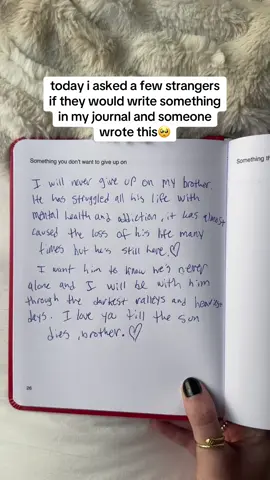 today i asked a few strangers
if they would write something
in my journal and someone
wrote this🥺
Something you don't want to give up on
Something th
I will never give up on my brother.
He has struggled all his life with
mental health and addiction, it was almost
caused the loss of his life many
times but he is still here.♡
I want him to know he's never
alone and I will be with him
through the darkest valleys and
days. I love you till the sun
dies, brother.♡
26